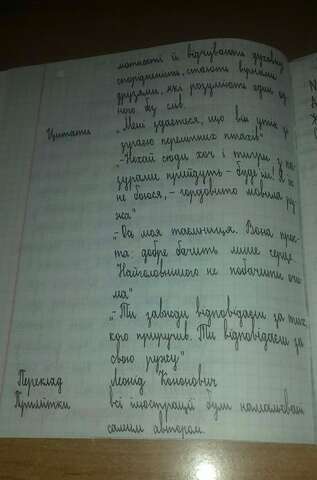 мотності й відчувають духовну
спорідненість, стають вірними
друзями, які розуміють один од-
ного без слів.
Цитати „Мені здається, що він утік зі
зграєю перелітних птахів"
„-Нехай сюди хоч і тигри з па-
зурами прийдуть – буде їм! Я їх
не боюся, – гордовито мовила ру-
жа"
„Ось моя таємниця. Вона прос-
та: добре бачить лише серце.
Найголовнішого не побачиш очи-
ма"
„-Ти завжди відповідаєш за тих,
кого приручив. Ти відповідаєш за
свою ружу"
Переклад Леонід Кононович
Примітки всі ілюстрації були намальовані
самим автором.